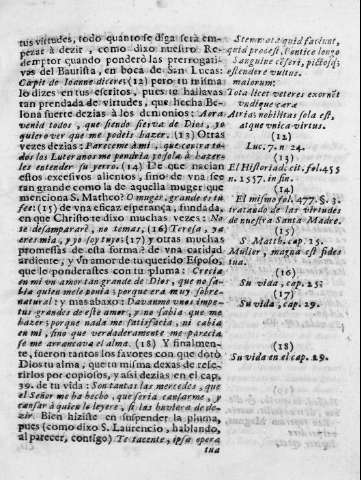 tus virtudes, todo quanto se diga serà em-
pezar à dezir, como dixo nuestro Re-
demptor quando ponderò las prerrogati-
vas del Bautista, en boca de San Lucas:
Cæpit de Ioanne dicere (12) pero tu misma
lo dizes en tus escritos, pues te hallavas
tan prendada de virtudes, que hecha Be-
lona fuerte dezias à los demonios: Aora
venid todos, que siendo sierva de Dios, yo
quiero ver que me podeis hazer. (13) Otras
vezes dezias: Pareceme à mi, que contra to-
dos los Luteranos me pondria yo sola à hazer-
les entender su yerro. (14) De que nacian
estos excessivos alientos, sino de una fee
tan grande como la de aquella muger que
menciona S. Matheo? O muger, grande es tu
fee: (15) de una eficaz esperança, fundada
en que Christo te dixo muchas vezes: No
te desampararè, no temas, (16) Teresa, ya
eres mia, y yo soy tuyo; (17) y otras muchas
promessas de esta forma? de una caridad
ardiente, y un amor de tu querido Esposo,
que lo ponderastes con tu pluma: Crecia
en mi un amor tan grande de Dios, que no sa-
bia quien me le ponia; porque era muy sobre-
natural: y mas abaxo: Davanme unos impe-
tus grandes de este amor, y no sabia que me
hazer; porque nada me satisfacia, ni cabia
en mi, sino que verdaderamente me parecia
se me arrancava el alma. (18) Y finalmen-
te, fueron tantos los favores con que dotò
Dios tu alma, que tu misma dexas de refe-
rirlos por copiosos, y assi dezias en el cap.
39. de tu vida: Son tantas las mercedes, que
el Señor me ha hecho, que seria cansarme, y
cansar à quien lo leyere, si las huviera de de-
zir. Bien hiziste en suspender la pluma,
pues (como dixo S. Laurencio, hablando,
al parecer, contigo) Te tacente, ipsa opera
tua
Stemmata quid faciunt,
quid prodest, Pontice longo
Sanguine cẽseri, pictosq;
ostendere vultus.
maiorum:
Tota licet veteres exornẽt
undique cæra
Atria: nobilitas sola est,
atque unica virtus.
(12)
Luc. 7. n. 24.
(13)
El Historiad. cit. fol. 455
n. 1557. in fin.
(14)
El mismo fol. 477. §. 3.
tratando de las virtudes
de nuestra Santa Madre.
(15)
S. Matth. cap. 15.
Mulier, magna est fides
tua.
(16)
Su vida, cap. 25.
(17)
Su vida, cap. 29.
(18)
Su vida en el cap. 29.